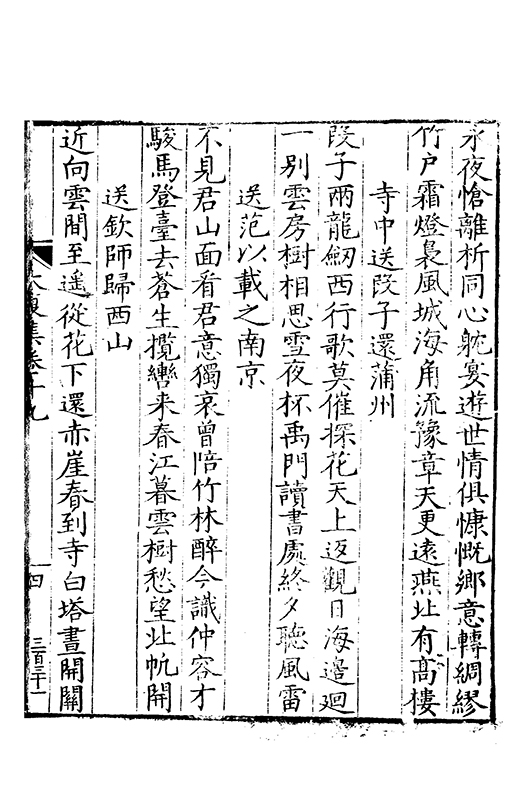 永夜愴離析同心躭宴遊世情俱慷慨鄉意轉綢繆
竹户霜燈裊風城海角流豫章天更遠燕北有髙樓
寺中送段子還蒲州
段子兩龍劒西行歌莫催探花天上返觀日海邉廻
一别雲房樹相思雪夜杯禹門讀書處終夕聽風雷
送范以載之南京
不見君山面看君意獨哀曽陪竹林醉今識仲容才
駿馬登臺去蒼生攬轡来春江暮雲樹愁望北帆開
送欽師歸西山
近向雲間至遥從花下還赤崖春到寺白塔晝開關
集卷十九
四
三百三十一